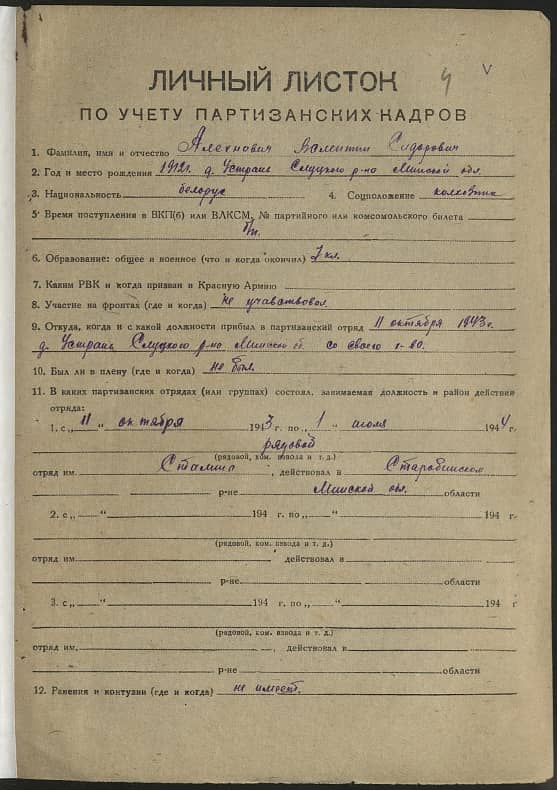 4
V
ЛИЧНЫЙ ЛИСТОК
ПО УЧЕТУ ПАРТИЗАНСКИХ КАДРОВ
1. Фамилия, имя и отчество Алехнович Валентин Сидорович
2. Год и место рождения 1912г. д. Устрань Слуцкого р-на Минской обл.
3. Национальность белорус 4. Соцположение колхозник
5. Время поступления в ВКП(б) или ВЛКСМ, № партийного или комсомольского билета
6. Образование: общее и военное (что и когда окончил) 7 кл.
7. Каким РВК и когда призван в Красную Армию
8. Участие на фронтах (где и когда) Не участвовал.
9. Откуда, когда и с какой должности прибыл в партизанский отряд 11 октября 1943г.
д. Устрань Слуцкого р-на Минской об. со своего х-ва.
10. Был ли в плену (где и когда) не был.
11. В каких партизанских отрядах (или группах) состоял, занимаемая должность и район действий
отряда:
1. с „ 11 “ октября 1943 г. по „ 1 “ июля 1944 г.
рядовой
(рядовой, ком. взвода и т. д.)
отряд им. Сталина, действовал в Старобинском
р-не Минской обл. области
2. с „ “ 194 г. по „ “ 194 г.
(рядовой, ком. взвода и т. д.)
отряд им. действовал в
р-не области
3. с „ “ 194 г. по „ “ 194 г
(рядовой, ком. взвода и т. д.)
отряд им. , действовал в
р-не области
12. Ранения и контузии (где и когда) не имеет.